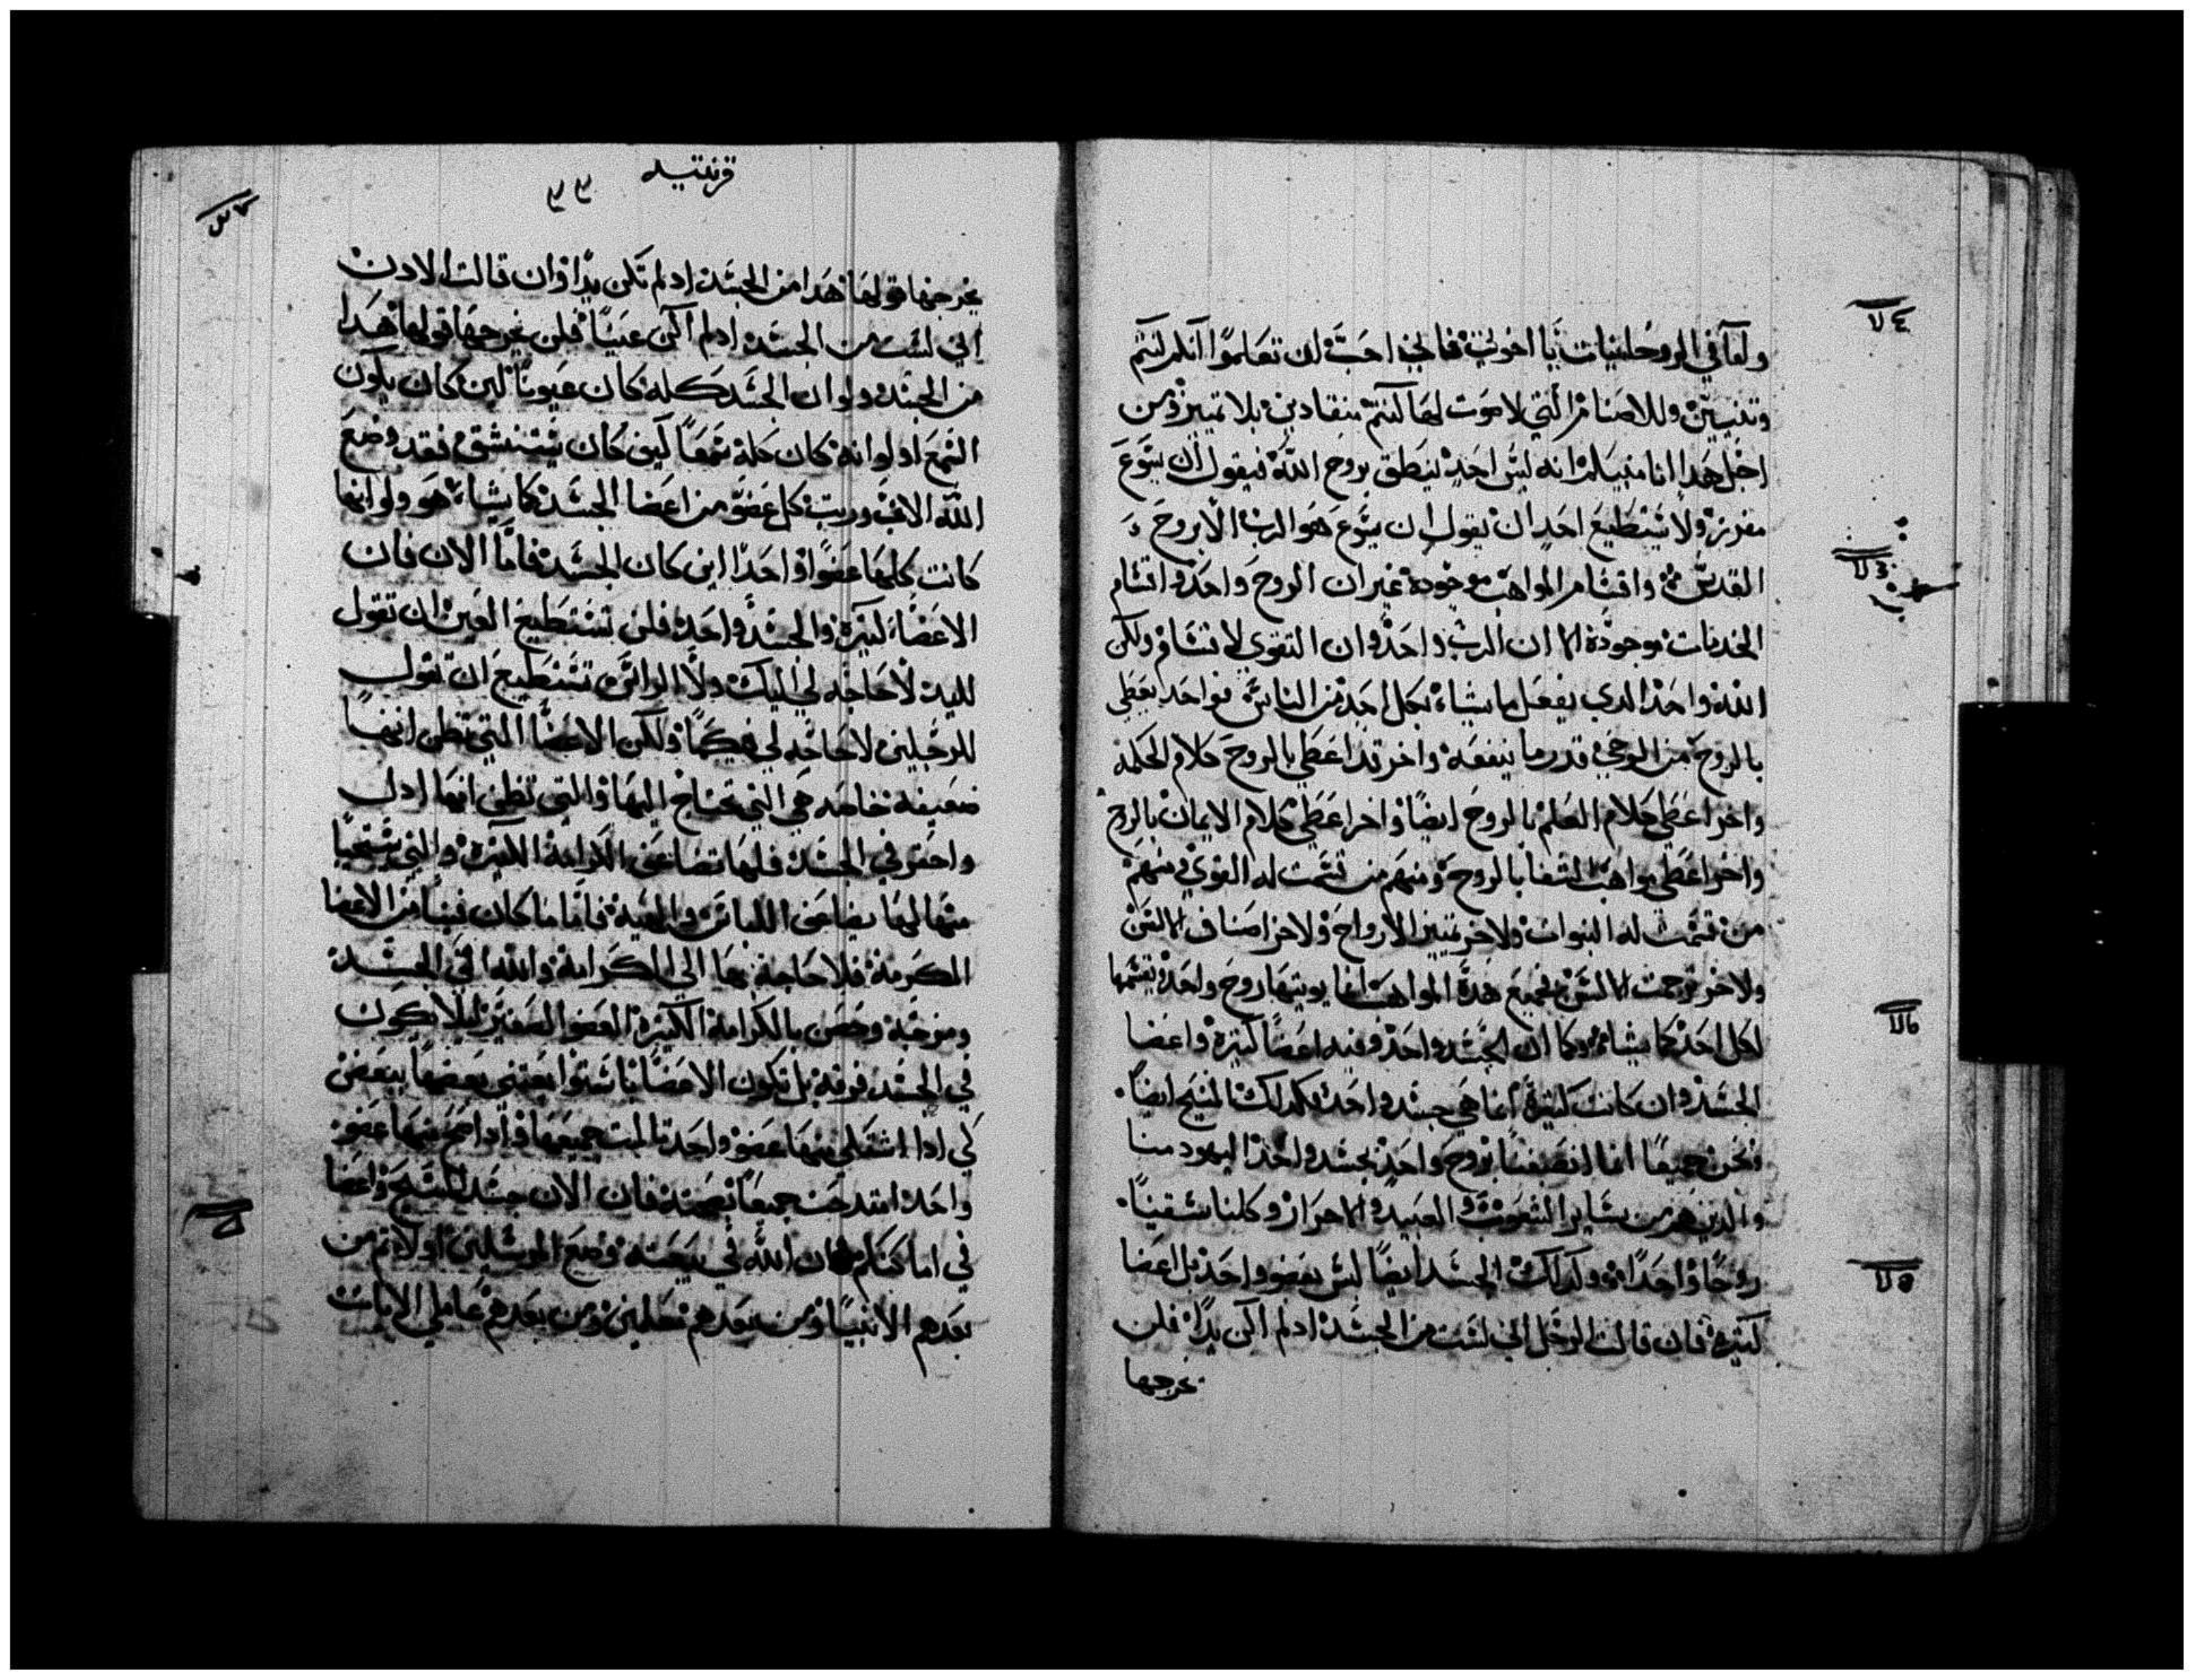 واما في الروحانيات يا اخوتي فاني احب ان تعلموا انكم كنتم
وتنيين وللاصنام التي لا صوت لها كنتم منقادين بلا تمييز ومن
اجل هدا انا منبيكم انه ليس احد ينطق بروح الله فيقول ان يسوع
مفروز ولا يستطيع احد ان يقول ان يسوع هو الرب الا بروح
القدس واقسام المواهب موجوده غير ان الروح واحد واقسام
الخدمات موجودة الا ان الرب واحد وان القوي لاقسام ولكن
الله واحد الدي يفعل ما يشاء بكل احد من الناس فواحد يعطي
بالروح من الوحي قدر ما ينفعه واخر قد اعطي بالروح كلام الحكمة
واخر اعطي كلام العلم بالروح ايضا واخر اعطي كلام الايمان بالروح
واخر اعطي مواهب الشفا بالروح ومنهم من قسمت له القوي ومنهم
من قسمت له النبوات ولاخر تمييز الارواح ولاخر اصناف الالسن
ولاخر ترجمت الالسن فجميع هدة المواهب انما يويتها روح واحد ويقسمها
لكل احد كما يشا وكما ان الجسد واحد وفيه اعضا كتيرة واعضا
الجسد وان كانت كتيرة انما هي جسد واحد فكدلك المسيح ايضا
ونحن جميعا انما انصبغنا بروح واحد بجسد واحد اليهود منا
والدين هم من ساير الشعوب والعبيد والاحرار وكلنا سقينا
روحا واحدا وكدلك الجسد ايضا ليس بعضو واحد بل اعضا
كتيرة فان قالت الرجل اني لست من الجسد ادلم اكن يدا فلن
يخرجها
قرنتيه
٣٣
يخرجها قولها هدا من الجسد ادلم تكن يدا وان قالت الادن
اني لست من الجسد ادلم اكن عينا فلن يخرجها قولها هدا
من الجسد ولو ان الجسد كله كان عيونا اين كان يكون
السمع او لو انه كان كله سمعا كيف كان يستنشق فقد وضع
الله الان ورتب كل عضو من اعضا الجسد كما يشاء هو ولو انها
كانت كلها عضوا واحدا اين كان الجسد فاما الان فان
الاعضا كتيرة والجسد واحد فلن تستطيع العين ان تقول
لليد لا حاجه لي اليك ولا الراس تستطيع ان تقول
للرجلين لا حاجه لي فيكما ولكن الاعضا التي تظن انها
ضعيفه خاصه هي التي تحتاج اليها والتي تظن انها ادل
واحقر في الجسد فلها تضاعف الكرامة الكتيرة والتي يستحيا
منها لها يضاعف اللباس والهيية فاما ما كان فينا من الاعضا
المكرمة فلا حاجة بها الي الكرامة والله الف الجسد
ومزجه وخص بالكرامة الكتيرة العضو الصغير ليلا يكون
في الجسد فرقه بل تكون الاعضا باستوا يعتني بعضها ببعض
كي ادا اشتكي منها عضو واحد تالمت جميعها وادا امتدح منها عضو
واحد امتدحت جميعا بصحته فان الان جسد المسيح واعضا
في اماكنكم فان الله في بيعته وضع المرسلين اولا تم من
بعدهم الانبيا ومن بعدهم معلمين ومن بعدهم عاملي الايات